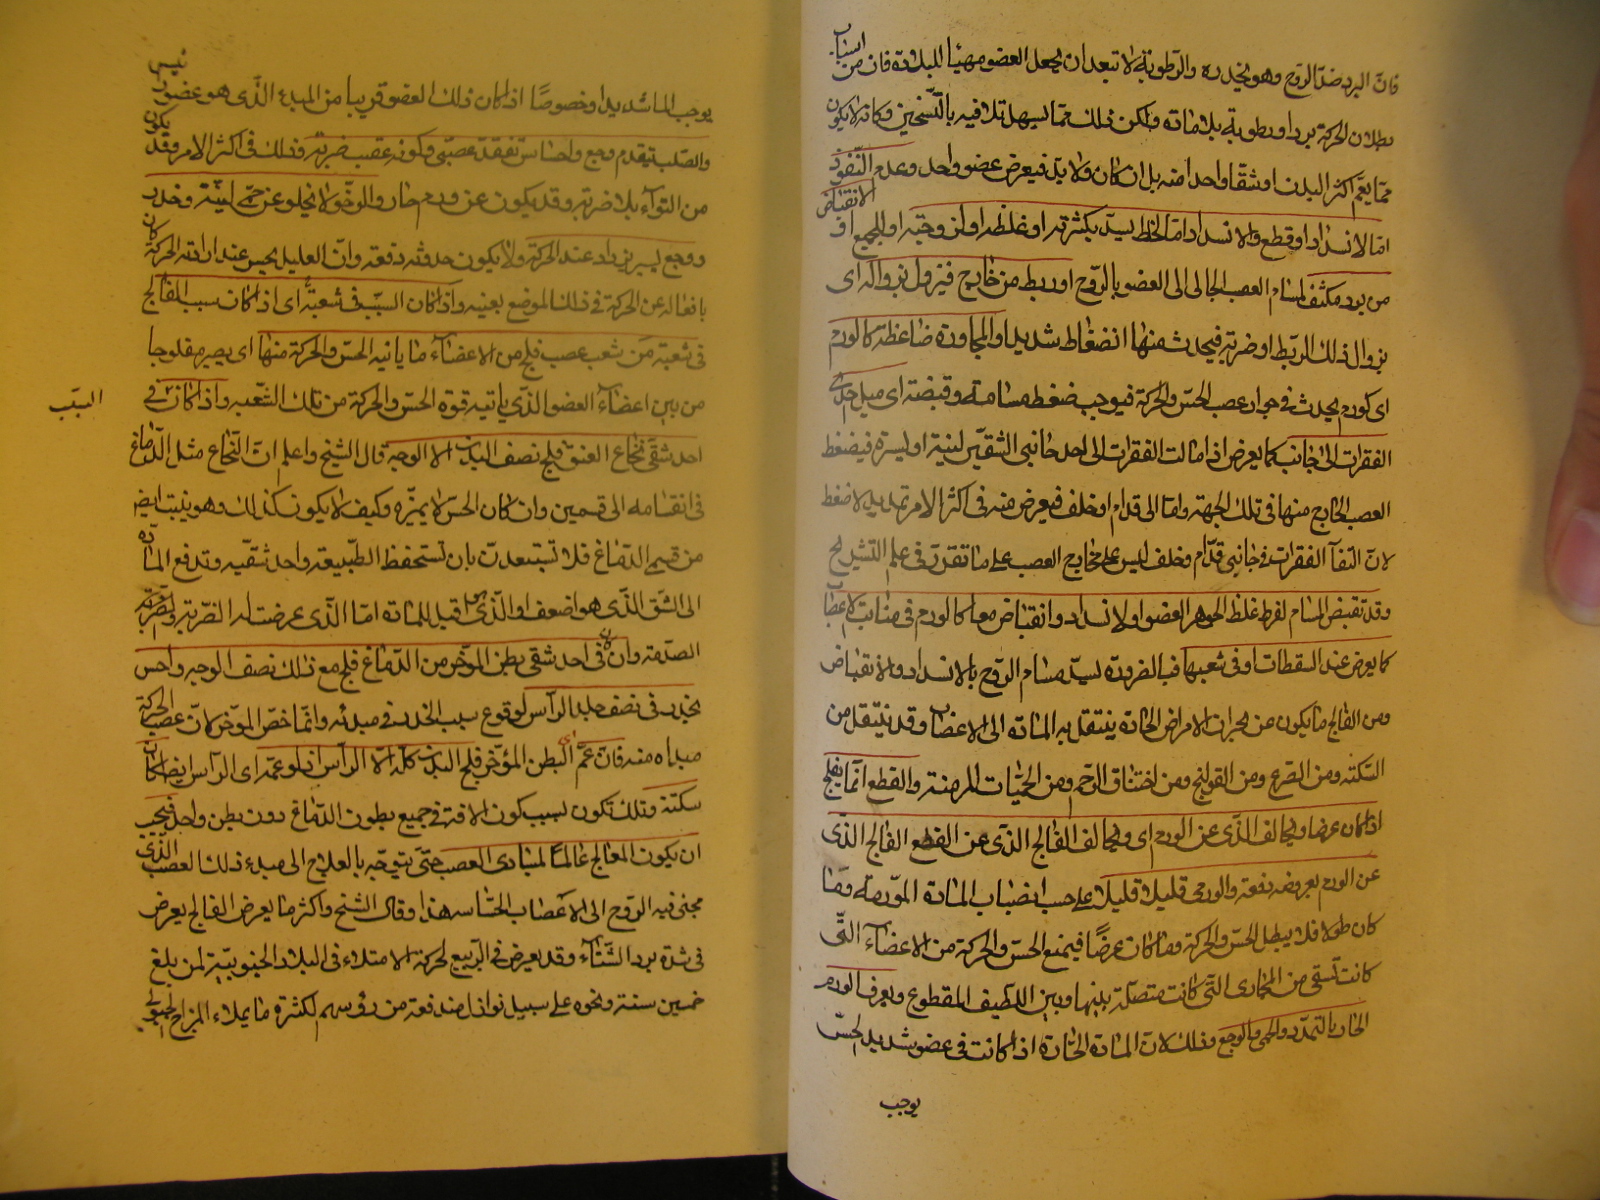 فان البرد ضد الروح وهو يخدره والرطوبة لا تبعد ان يجعل العضو مهيئا للبلادة فان من اسباب
بطلان الحركة برد او رطوبة بلا مادة ولكن ذلك مما يسهل تلافيه بالتسخين وكانه لا يكون
مما يعم اكثر البدن او شقا واحدا منه بل ان كان ولا بد فيعرض عضو واحد وعدم النفوذ
اما لانسداد او قطع والانسداد اما لخلط يسد بكثرته او غلظه او لزوجته او للجميع او الانقباض
من برد مكثف لمسام العصب الجالي الى العضو بالروح او ربط من خارج فيزول بزواله اى
بزوال ذلك الربط او ضربة فيحدث منها انضغاط شديد او المجاورة ضاغطة كالورم
اى كورم يحدث في جوار عصب الحس والحركة فيوجب ضغط مسامه وقبضه اى ميل احدى
الفقرات الى جانب كما يعرض اذا مالت الفقرات الى احد جانبى الشقين يمنية او يسرة فيضغط
العصب الخارج منها في تلك الجهة واما الى قدام او خلف فيعرض منه في اكثر الامر تمديد لا ضغط
لان التقآ الفقرات في جانبي قدام وخلف ليس على مخارج العصب على ما تقدر في علم التشريح
وقد تقبض المسام لفرط غلظ الجوهر العضو او لانسداد وانقباض معا كالورم في منابت الاعصاب
كما يعرض عند السقطات او في شعبها فبالضرورة يسد مسام الروح بالانسداد والانقباض
ومن الفالج ما يكون من بحران الامراض الحادة ينتقل به المادة الى الاعصاب وقد ينتقل من
السكتة ومن الصرع ومن القولنج ومن اختناق الرحم ومن الحميات المزمنة والقطع انما يفلج
اذا كان عرضا ويخالف الذى عن الورم اى ويخالف الفالج الذى عن القطع الفالج الذى
عن الورم بعروضه دفعة والورمى قليلا قليلا على حسب انصباب المادة المورمة وما
كان طولا فلا يبطل الحس والحركة وما كان عرضا فيمنع الحس والحركة من الاعضآء التى
كانت تسقى من المجارى التى كانت متصلة بينها وبين الليف المقطوع ويعرف الورم
الحار بالتمدد والحمى والوجع وذلك لان المادة الحادة اذا كانت في عضو شديد الحس
يوجب
يوجب الما شديدا وخصوصا اذا كان ذلك العضو قريبا من المبدء الذى هو عضو رئيس
والصلب بتقدم وجع واحساس تفقد عصبى وكونه عقيب ضربة وذلك في اكثر الامر وقد يكون
من التوآء بلا ضربة وقد يكون عن ورم حار والرخو لا يخلو عن حمى لينة وخدر
ووجع يسير يزداد عند الحركة ولا يكون حدوثه دفعة وان العليل يحس عند ارادته الحركة كان
بانعاله عن الحركة في ذلك الموضع بعينه واذا كان السبب في شعبة اى اذا كان سبب الفالج
في شعبة من شعب عصب فلج من الاعضآء ما ياتيه الحس والحركة منها اى يصير مفلوجا
من بين اعضآء العضو الذى ياتيه قوة الحس والحركة من تلك الشعبة واذا كان في
السبب
احد شقى نخاع العنق فلج نصف البدن الا الوجه قال الشيخ واعلم ان النخاع مثل الدماغ
في انقسامه الى قسمين وان كان الحس لا يميزه وكيف لا يكون كذلك وهو ينبت ايضا
من قسمى الدماغ فلا تستبعدن بان تستحفظ الطبيعة واحد شقيه وتدفع المادة
الى الشق الذى هو اضعف او الذى هو اقبل للمادة اما الذى عرضت له الضربة
الصدمة وان كان في احد شقى بطن المؤخر من الدماغ فلج مع ذلك نصف الوجه واحس
بخدر في نصف جلد الراس لوقوع سبب الخدر في مبدئه وانما خص المؤخر لان عصب الحركة
مبداه منه فان عم اى البطن المؤخر فلج البدن كله الا الراس فلو عمه اى الراس ايضا كان
سكتة وتلك تكون بسبب كون الافة في جميع بطون الدماغ دون بطن واحد فيجب
ان يكون المعالج عالما لمبادى العصب حتى يتوجه بالعلاج الى مبدء ذلك العصب الذى
مجئى فيه الروح الى الاعصاب الحساسه هذا وقال الشيخ واكثر ما يعرض الفالج يعرض
في شدة برد الشتآء وقد يعرض في الربيع لحركة الامتلاء في البلاد الجنوبية لمن بلغ
خمسين سنة ونحوه على سبيل نوازل مندفعة من رؤسهم لكثرة ما يملاء المزاج الجنوبى